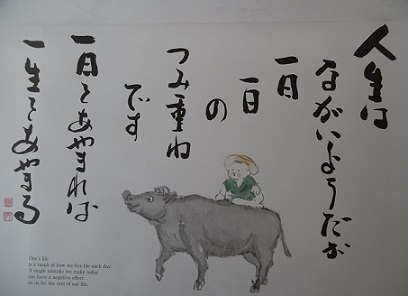 人生は
ながいようだが
一日
一日
の
つみ重ね
です
一日をあやまれば
一生をあやまる
One's life
is a result of how we live life each day.
A single mistake we make today
can have a negative effect
on us for the rest of our life.